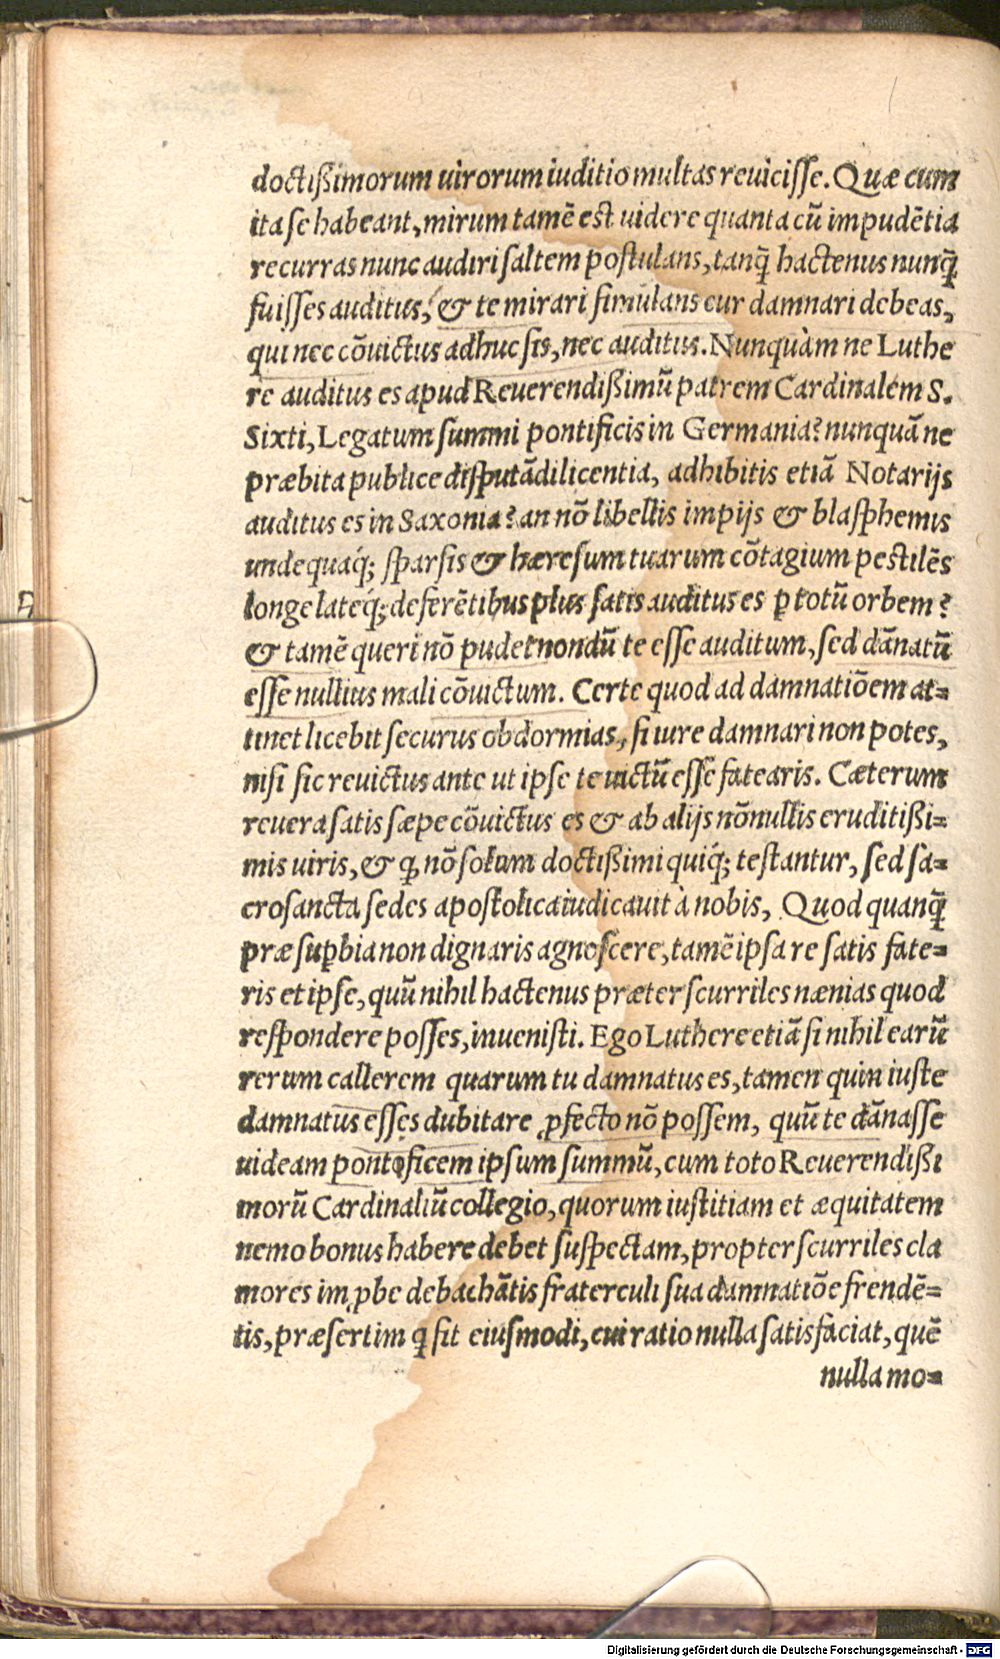 doctißimorum uirorum iuditio multas reuicisse. Quæ cum
ita se habeant, mirum tamē est uidere quanta cū impudētia
recurras nunc audiri saltem postulans, tanq̄ hactenus nunq̄
fuisses auditus, & te mirari simulans cur damnari debeas,
qui nec cōuictus adhuc sis, nec auditus. Nunquàm ne Luthe
re auditus es apud Reuerendißimū patrem Cardinalem S.
Sixti, Legatum summi pontificis in Germania? nunquā ne
præbita publice disputādi licentia, adhibitis etiā Notarijs
auditus es in Saxonia? an nō libellis impijs & blasphemis
undequaq́; sparsis & hæresum tuarum cōtagium pestilēs
longe lateq́; deferētibus plus satis auditus es ꝑ totū orbem?
& tamē queri nō pudet nondū te esse auditum, sed dānatū
esse nullius mali cōuictum. Certe quod ad damnatiōem at=
tinet licebit securus obdormias, si iure damnari non potes,
nisi sic reuictus ante ut ipse te uictū esse fatearis. Cæterum
reuera satis sæpe cōuictus es & ab alijs nōnullis eruditißi=
mis uiris, & ꝙ nō solum doctißimi quiq́; testantur, sed sa=
crosancta sedes apostolica iudicauit à nobis, Quod quanq̄
præ suꝑbia non dignaris agnoscere, tamē ipsa re satis fate=
ris et ipse, quū nihil hactenus præter scurriles nænias quod
respondere posses, inuenisti. Ego Luthere etiā si nihil earū
rerum callerem quarum tu damnatus es, tamen quin iuste
damnatus esses dubitare ꝓfecto nō possem, quū te dānasse
uideam pontificem ipsum summū, cum toto Reuerendißi
morū Cardinaliū collegio, quorum iustitiam et æquitatem
nemo bonus habere debet suspectam, propter scurriles cla
mores imꝓbe debachātis fraterculi sua damnatiōe frendē=
tis, præsertim ꝙ sit eiusmodi, cui ratio nulla satisfaciat, quē
nulla mo=
Digitalisierung gefördert durch die Deutsche Forschungsgemeinschaft - DFG